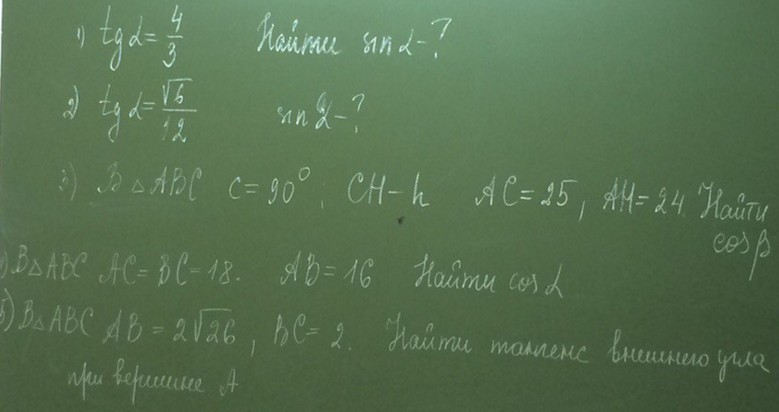 1) tg α = 4/3 Найти sin α - ?
2) tg α = √6/12 sin α - ?
3) В △ ABC C = 90°; CH - h AC = 25, AH = 24. Найти
cos β
) В △ ABC AC = BC = 18. AB = 16 Найти cos α
5) В △ ABC AB = 2√26, BC = 2. Найти тангенс внешнего угла
при вершине А